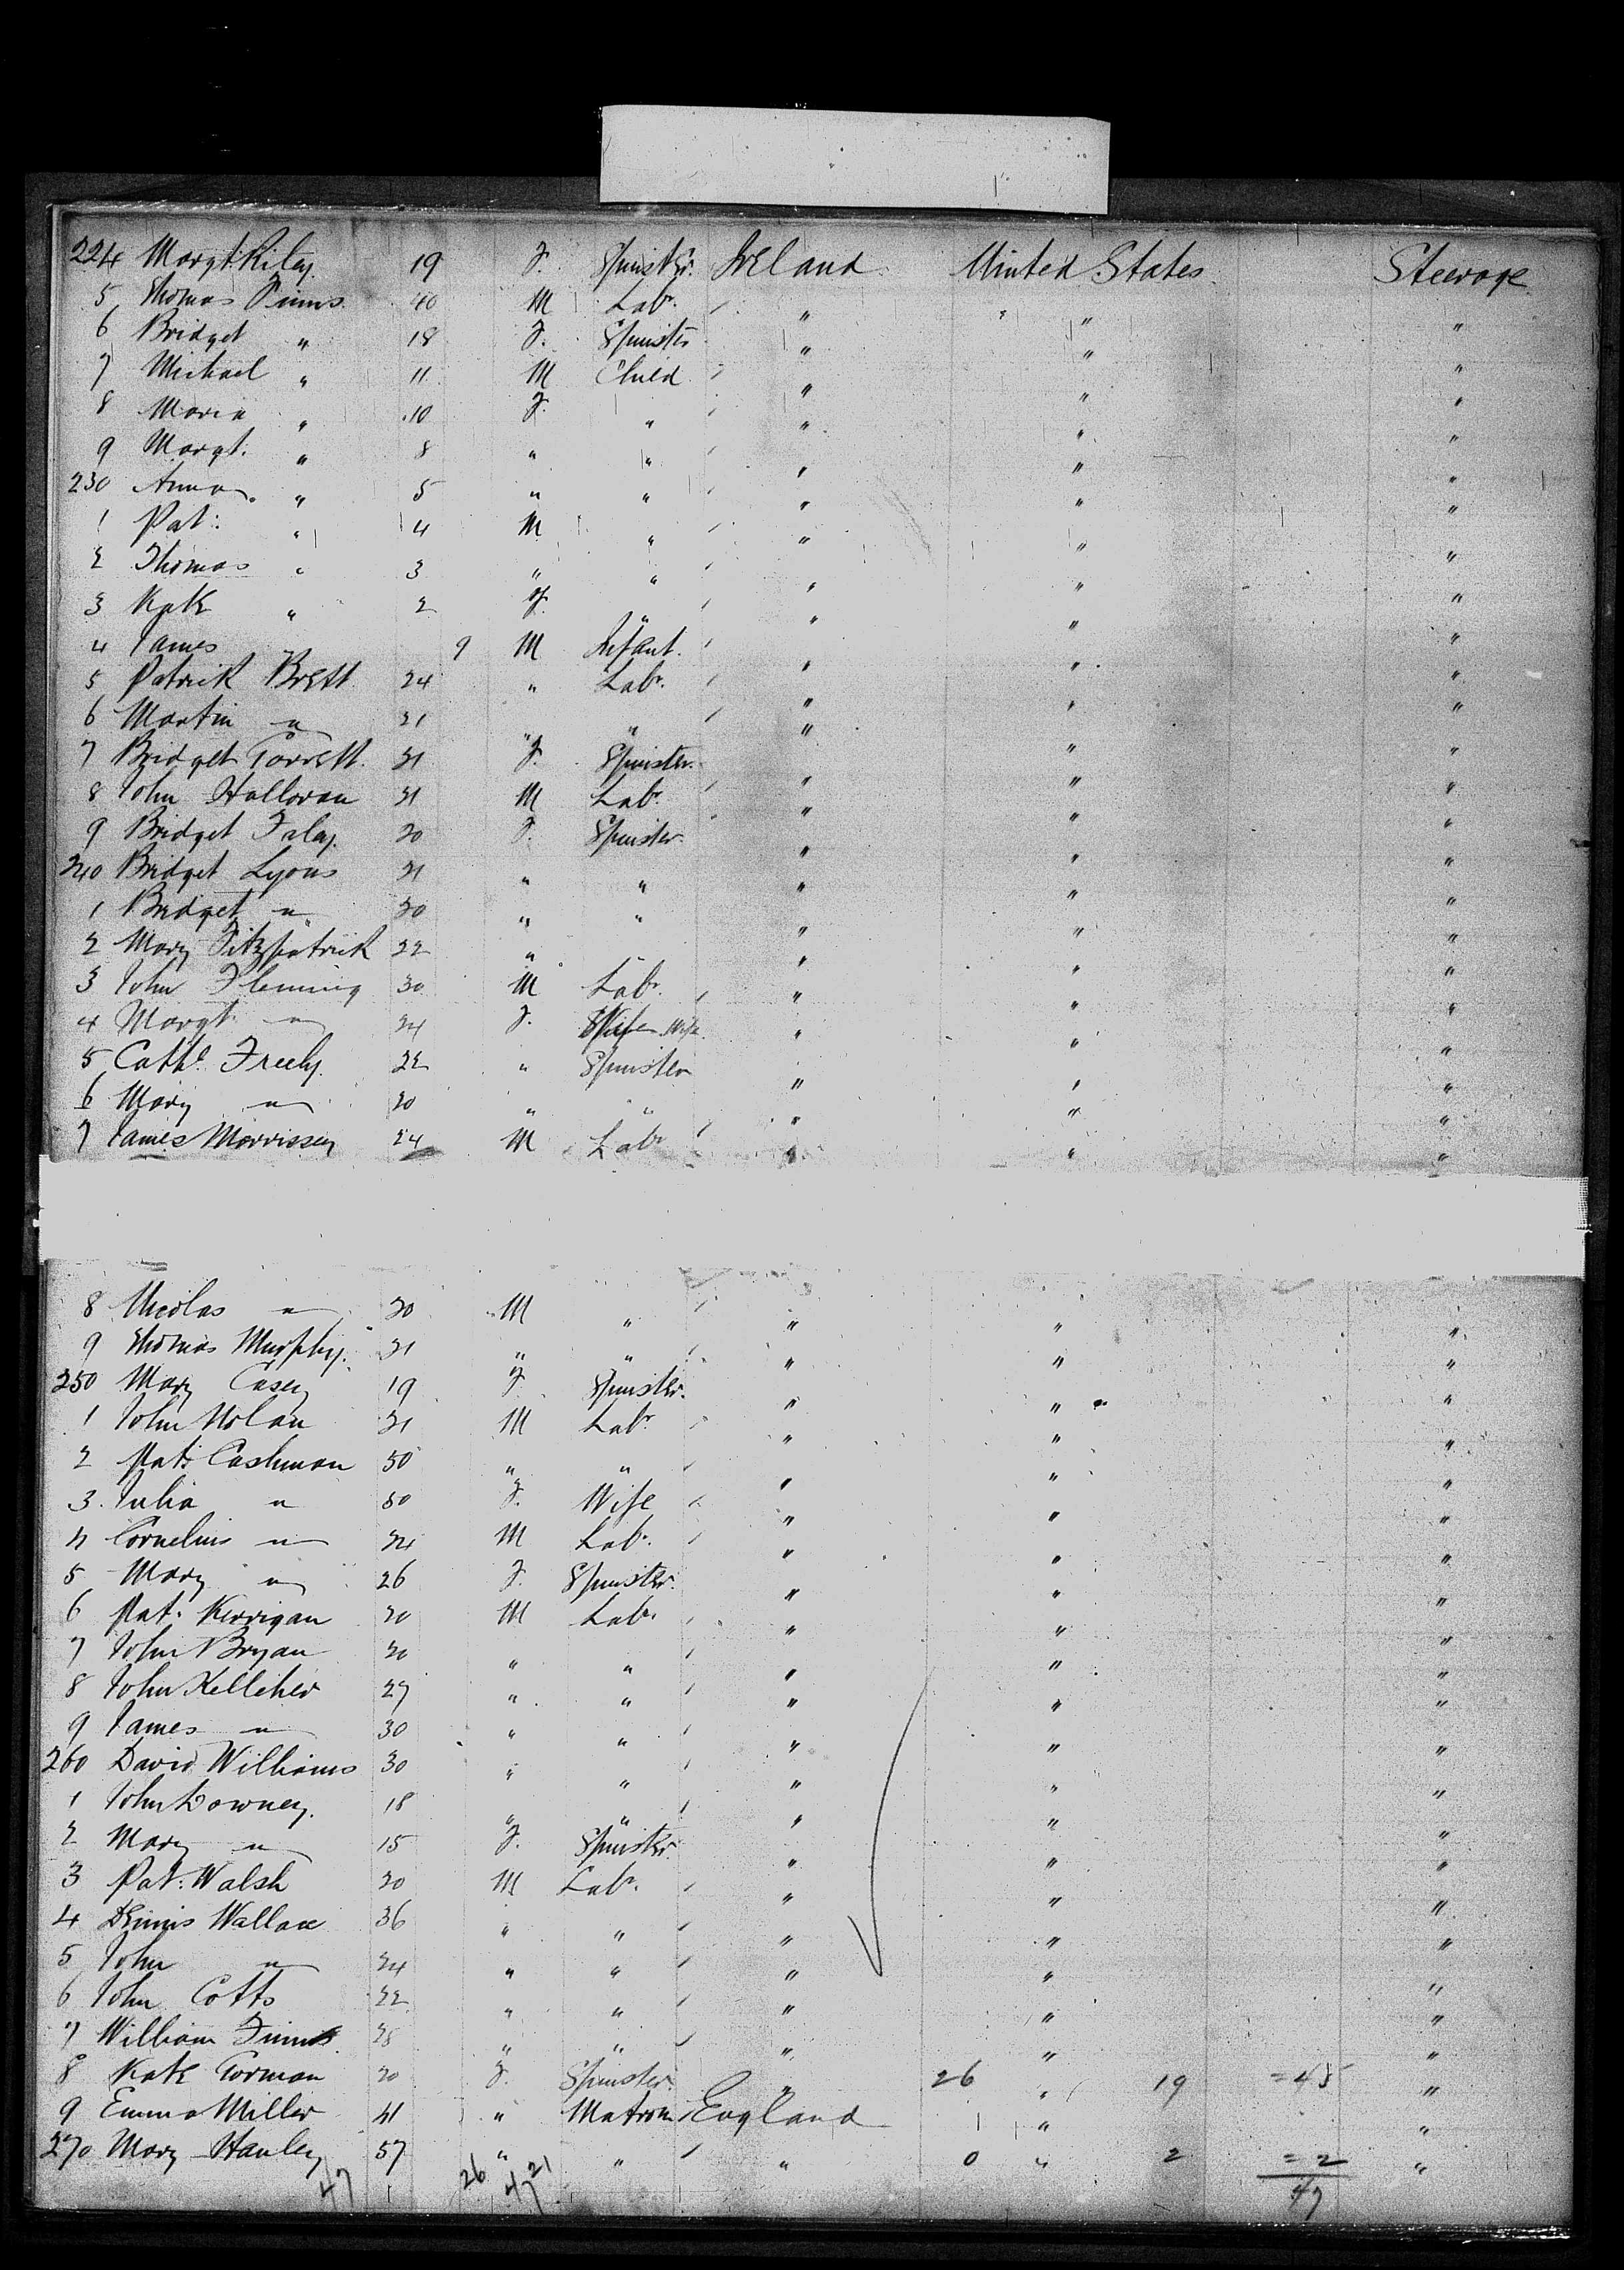 224 Margt. Riley 19 F. Spinster. Ireland United States Steerage
5 Thomas 40 M Lab. " " "
6 Bridget " 18 F. Spinster " " "
7 Michael " 11 M Child " " "
8 Maria " 10 F. " " " "
9 Margt. " 8 " " " " "
230 Anna " 5 " " " " "
1 Pat: " 4 M " " " "
2 Thomas " 3 " " " " "
3 Kate " 2 F. " " " "
4 James 9 M Infant. " " "
5 Patrick Brett 24 " Labr. " " "
6 Martin " 21 " " " " "
7 Bridget 21 F. Spinster. " " "
8 John Halloran 21 M Labr. " " "
9 Bridget 20 F. Spinster. " " "
240 Bridget Lyons 21 " " " " "
1 Bridget " 20 " " " " "
2 Mary Fitzpatrick 22 " " " " "
3 John Fleming 30 M Labr. " " "
4 Margt. " 24 F. Wife " " "
5 Cathe. Freely 22 " Spinster " " "
6 Mary " 20 " " " " "
7 James Morrissey 24 M Labr " " "
8 Nicolas " 20 M " " " "
9 Thomas Murphy. 21 " " " " "
250 Mary Casey 19 F Spinster. " " "
1 John Nolan 21 M Labr " " "
2 Pat: Cashman 50 " " " " "
3. Julia " 50 F. Wife " " "
4 Cornelius " 24 M Lab. " " "
5 Mary " 26 F. Spinster. " " "
6 Pat. Kerrigan 20 M Labr. " " "
7 John Bryan 20 " " " " "
8 John Kelleher 27 " " " " "
9 James " 30 " " " " "
260 David Williams 30 " " " " "
1 John Downey. 18 " " " " "
2 Mary " 15 F. Spinster. " " "
3 Pat. Walsh 20 M Labr. " " "
4 Dennis Wallace 36 " " " " "
5 John " 24 " " " " "
6 John Cotts 22 " " " " "
7 William 28 " " " " "
8 Kate Gorman 20 F. Spinster. " 26 " 19 =45 "
9 Emma Miller 41 " Matron England 1 " "
270 Mary Hanley 57 " " " 0 " 2 =2 "
47 26 47 21 47